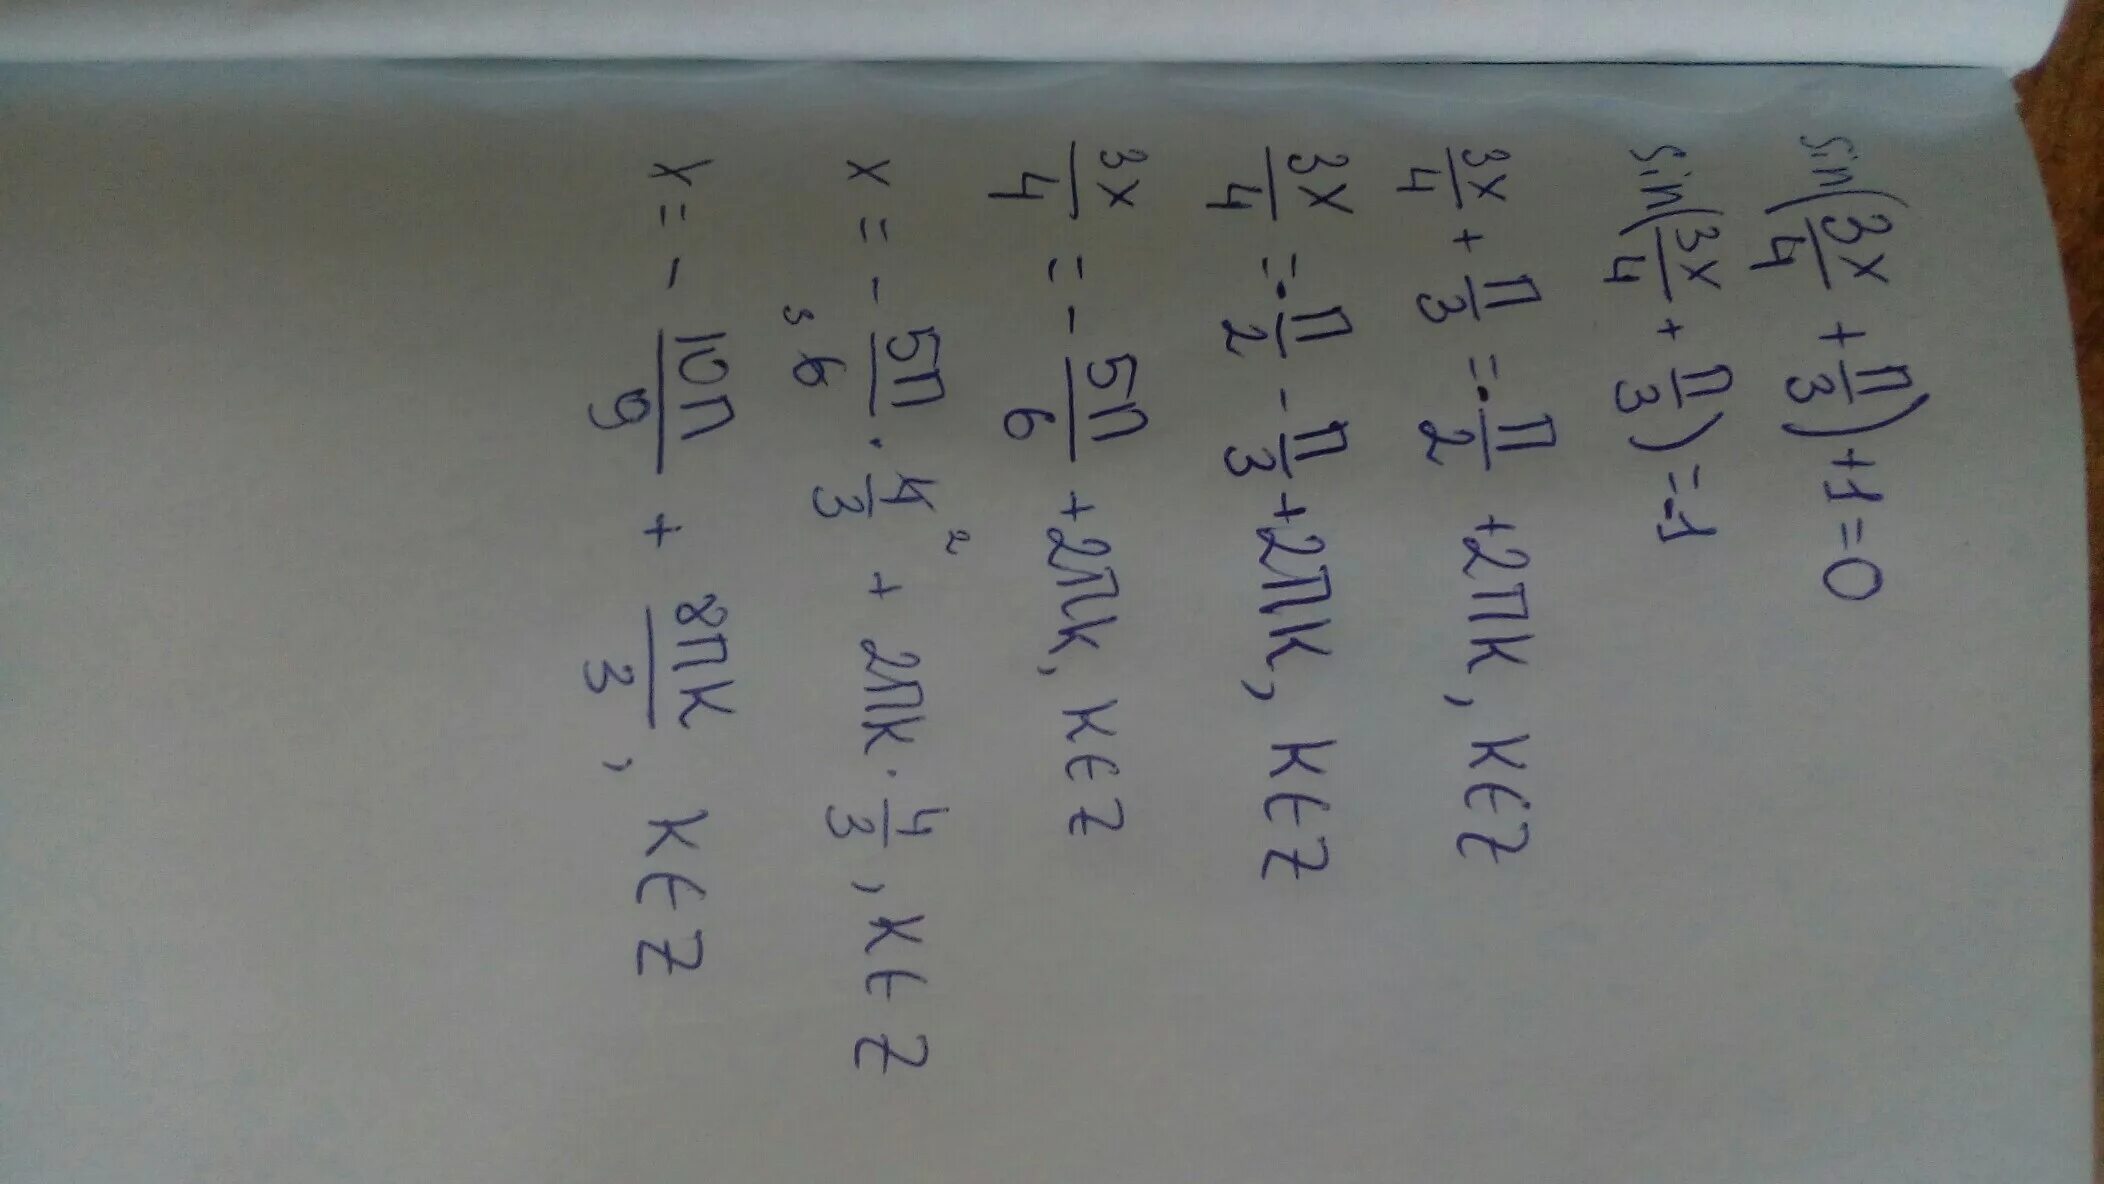 sin(3x/4 + π/3) + 1 = 0
sin(3x/4 + π/3) = -1
3x/4 + π/3 = -π/2 + 2πk, k∈Z
3x/4 = -π/2 - π/3 + 2πk, k∈Z
3x/4 = -5π/6 + 2πk, k∈Z
x = -5π/6 3 · 4/3 2 + 2πk · 4/3, k∈Z
x = -10π/9 + 8πk/3, k∈Z